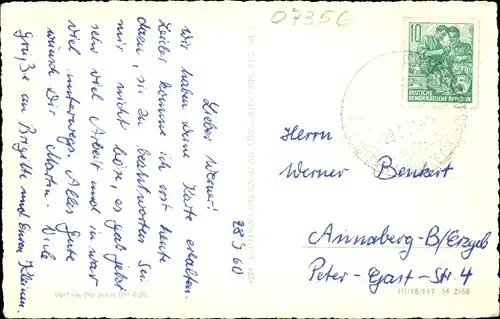 07356
28.9.60
Lieber Werner!
Wir haben Deine Karte erhalten.
Leider komme ich erst heute
dazu, sie zu beantworten. Sei
mir nicht böse, es gab jetzt
sehr viel Arbeit und ich war
viel unterwegs. Alles Gute
wünscht Dir Martin. Viele
Grüße an Brigitte und Euren Kleinen.
10
DEUTSCHE
DEMOKRATISCHE REPUBLIK
Herrn
Werner Benkert
Annaberg-B/Erzgeb
Peter-Gast-Str. 4
III/18/117 14 2/60
Verbraucherpreis